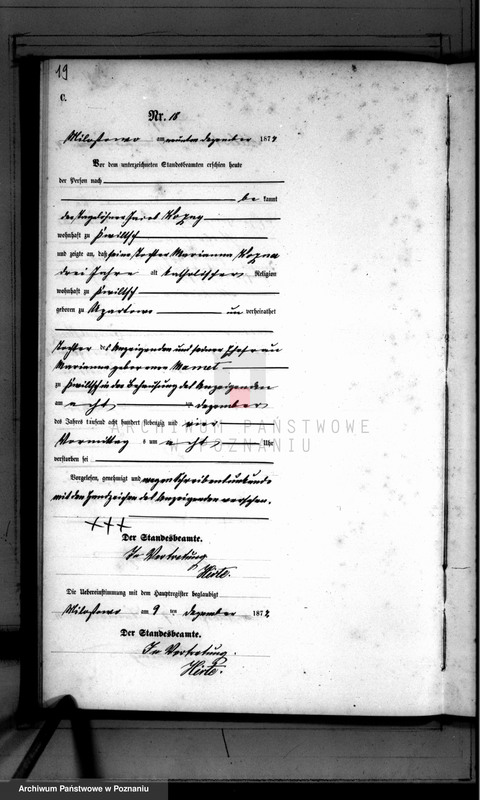 19
C.
Nr. 18
Milostowo am neunten Dezember 1874
Vor dem unterzeichneten Standesbeamten erschien heute
der Person nach
be kannt
der Tagelöhner
wohnhaft zu Kwiltsch
und zeigte an, daß seine Tochter Marianna
drei Jahre alt katholischer Religion
wohnhaft zu Kwiltsch
geboren zu un verheirathet
Tochter des Anzeigenden und seiner Ehefrau
Marianna geborenen Mamet
zu Kwiltsch in der Behausung des Anzeigenden
am acht ten Dezember
des Jahres tausend acht hundert siebenzig und vier
Vormittag s um acht Uhr
verstorben sei
Vorgelesen, genehmigt und wegen Schreibensunkunde
mit den Handzeichen des Anzeigenden versehen.
+++
Der Standesbeamte.
In Vertretung
Hirte.
Die Uebereinstimmung mit dem Hauptregister beglaubigt
Milostowo am 9 ten Dezember 187
Der Standesbeamte.
In Vertretung.
Hirte.
ARCHIWUM PAŃSTWOWE
W POZNANIU
Archiwum Państwowe w Poznaniu